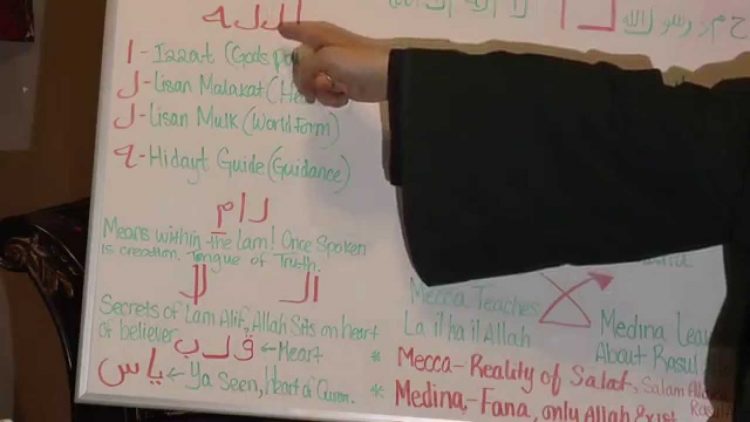 ا ل ل ه
رسول الله
ا - Izzat (Gods
ل - Lisan Malakat (
ل - Lisan Mulk (World Form)
ه - Hidayt Guide (Guidance)
ل ا م
Means within the lam! Once Spoken
is creation. Tongue of Truth.
ال
Secrets of Lam Alif, Allah Sits on heart
of believer
ق ل ب ← Heart
ي ا س ← Ya Seen, Heart of Quran.
Mecca Teaches
La il ha il Allah
Medina
About Rasul
* Mecca - Reality of Salat, Salam
* Medina, - Fana, only Allah Exist